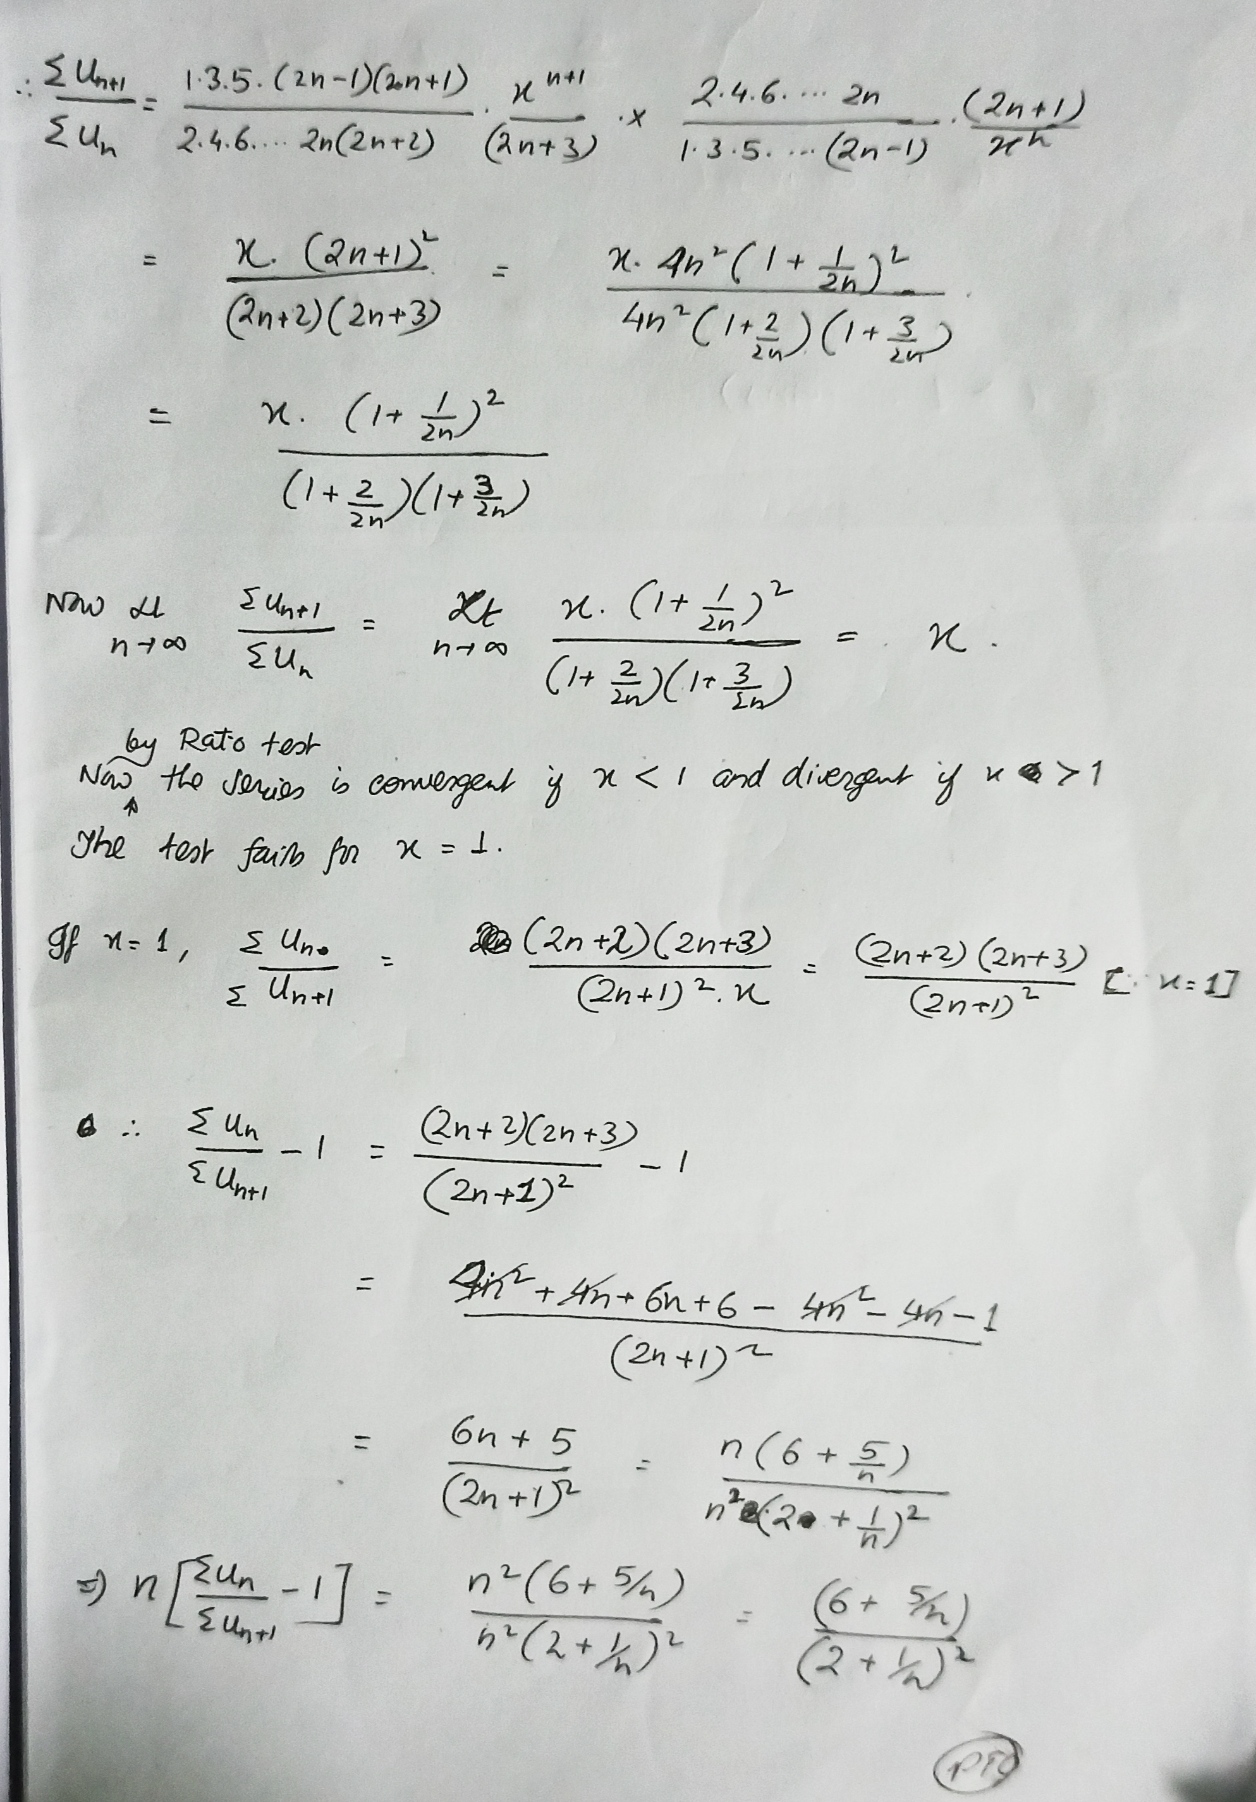 ∴ ΣUn+1/ΣUn = 1·3·5·(2n-1)(2n+1)/2·4·6·... 2n(2n+2) · x^(n+1)/(2n+3) · × 2·4·6·... 2n/1·3·5·...(2n-1) · (2n+1)/x^n
= x·(2n+1)²/(2n+2)(2n+3) = x·4n²(1+1/2n)²/4n²(1+2/2n)(1+3/2n)
= x·(1+1/2n)²/(1+2/2n)(1+3/2n)
Now Lt n→∞ ΣUn+1/ΣUn = Lt n→∞ x·(1+1/2n)²/(1+2/2n)(1+3/2n) = x.
by Ratio test
Now the series is convergent if x < 1 and divergent if x > 1
The test fails for x = 1.
If x = 1, ΣUn/ΣUn+1 = (2n+2)(2n+3)/(2n+1)²·x = (2n+2)(2n+3)/(2n+1)² [∵ x=1]
∴ ΣUn/ΣUn+1 - 1 = (2n+2)(2n+3)/(2n+1)² - 1
= 4n² + 4n + 6n + 6 - 4n² - 4n - 1/(2n+1)²
= 6n + 5/(2n+1)² = n(6 + 5/n)/n²(2 + 1/n)²
⇒ n[ΣUn/ΣUn+1 - 1] = n²(6 + 5/n)/n²(2 + 1/n)² = (6 + 5/n)/(2 + 1/n)²
PTO